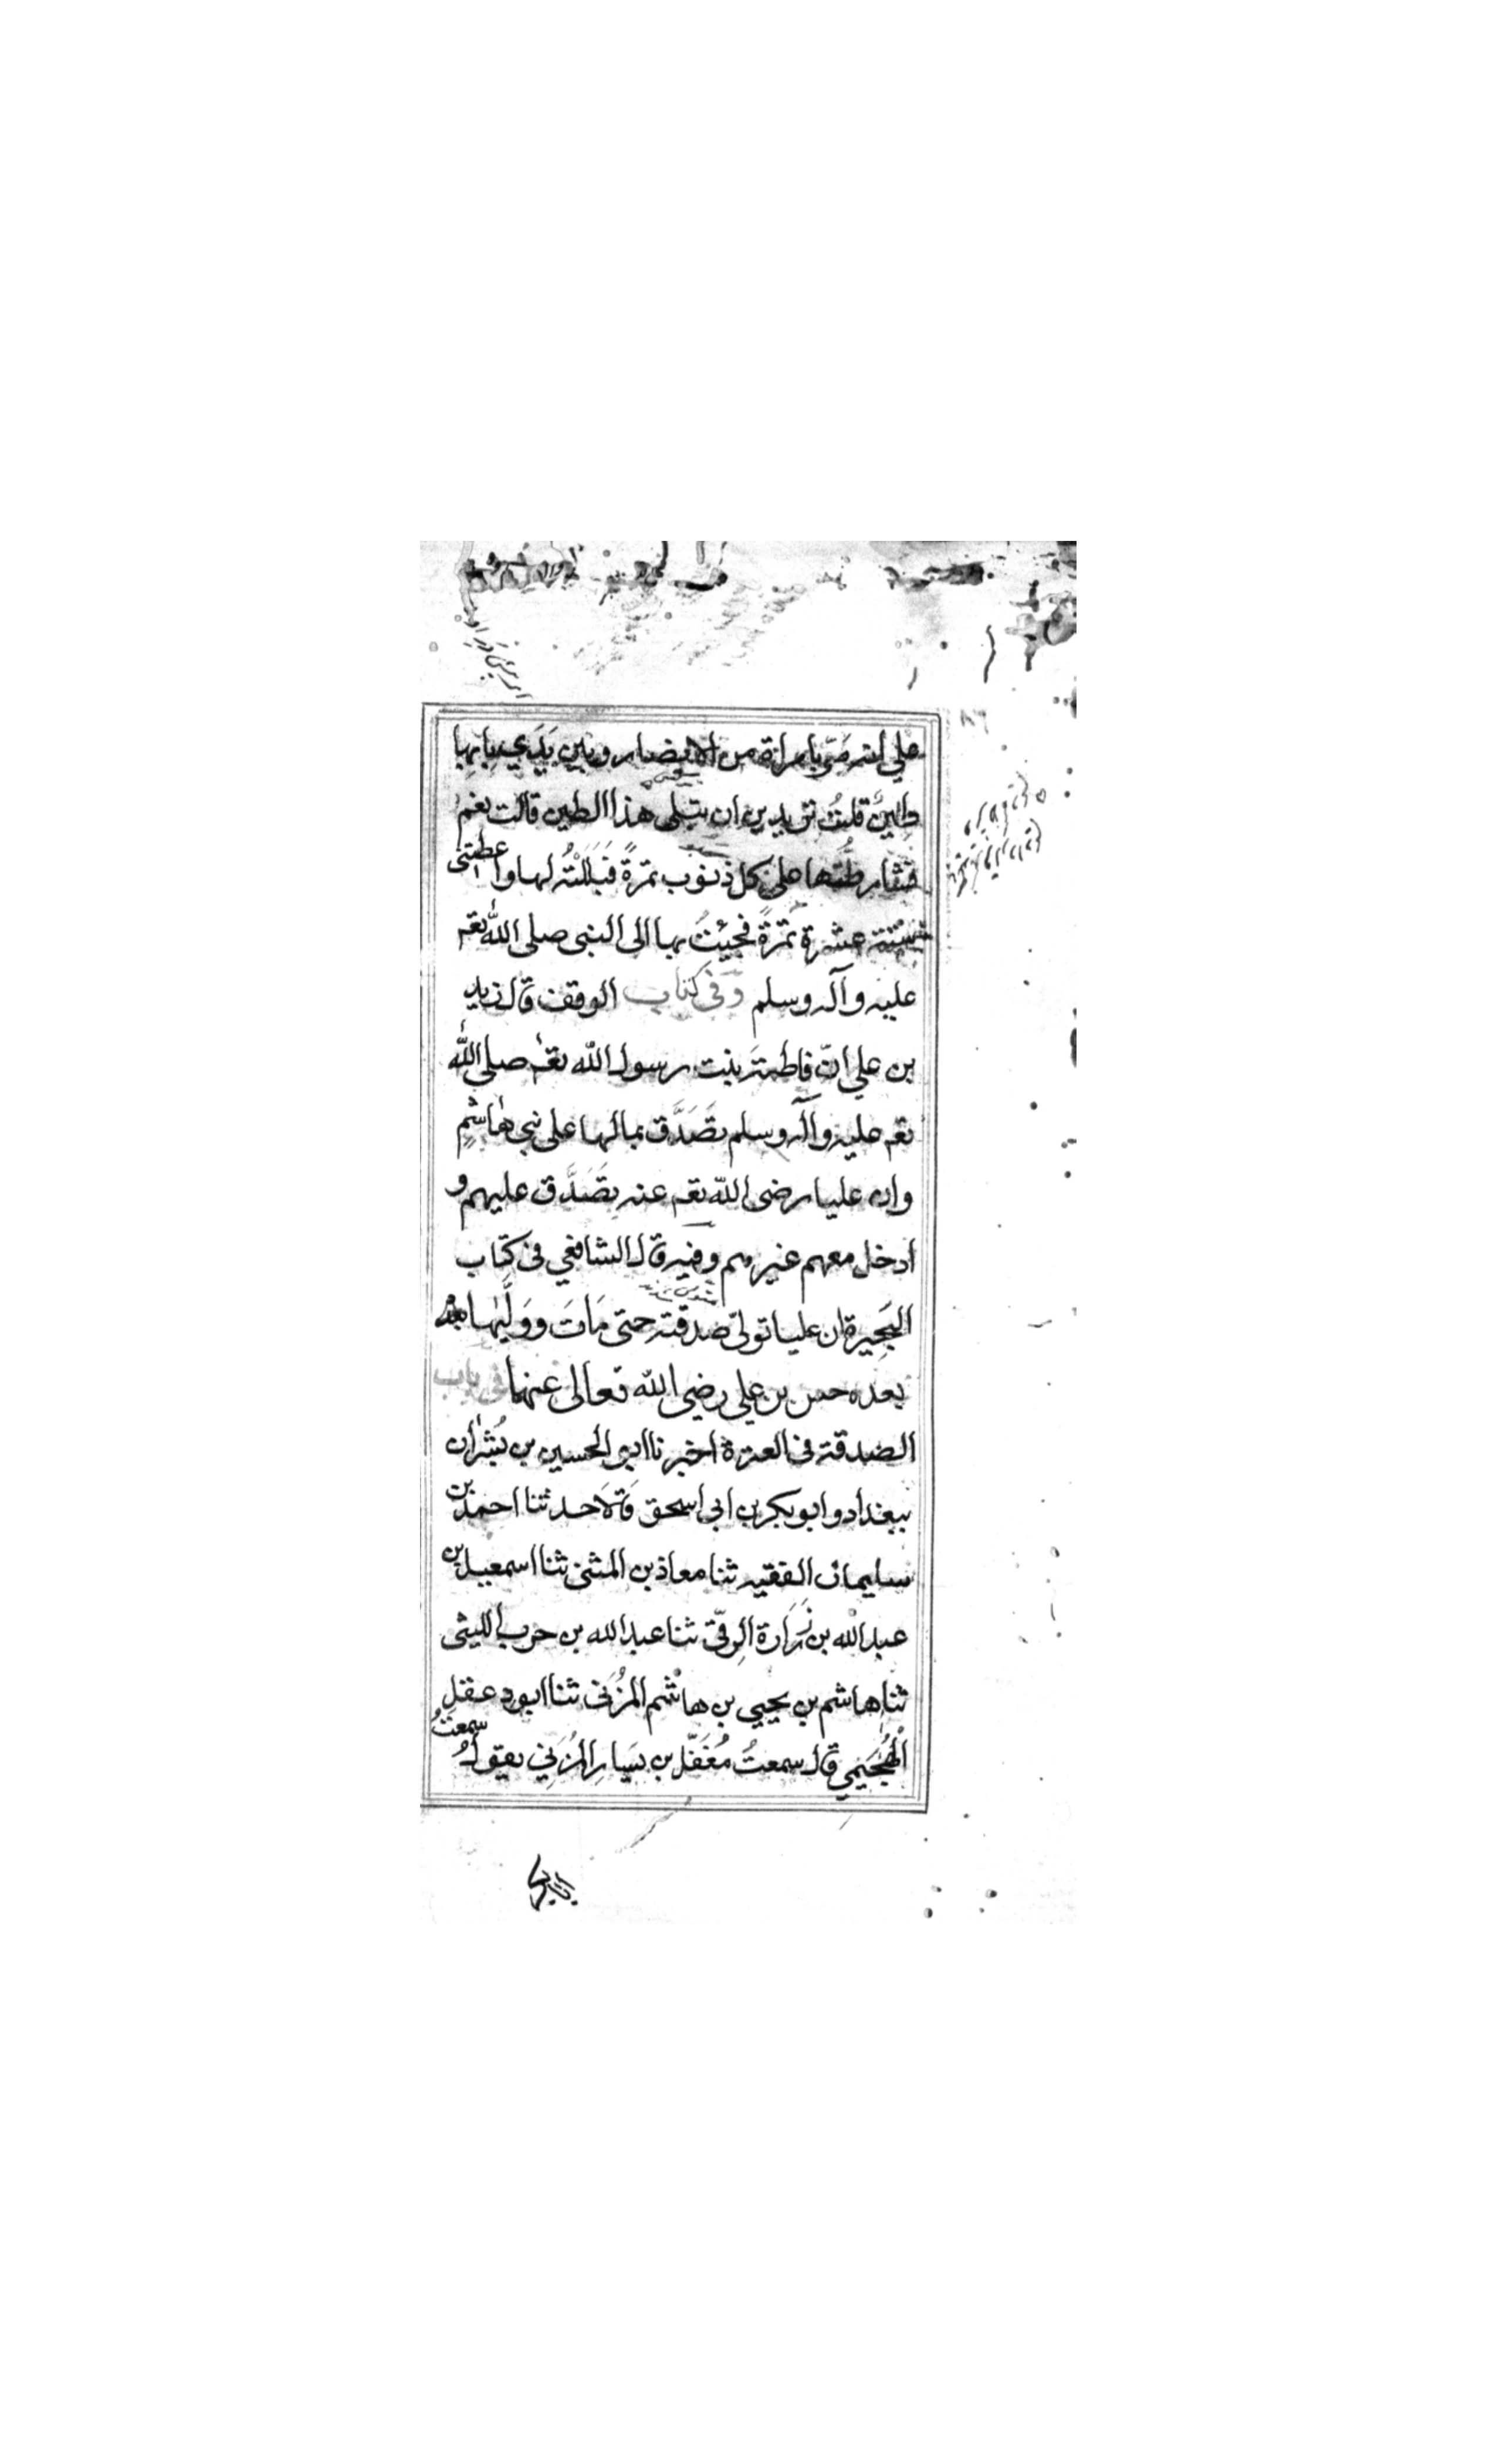 علي انه مَرّ بامراة من الانصار وبين يَدَي بابها
طِينٌ قلتُ تريدين ان يبتلى هذا الطين قالت نعم
فشارطتُها على كل ذنوب تمرةً فبَلَلْتُه لها واعطتنى
ستة عشرة تمرةً فجيئتُ بها الى النبى صلى الله تعـ
عليه وآله وسلم وفى كتاب الوقف قال زيد
بن علي انّ فاطمة بنت رسول الله تعـ صلى الله
تعـ عليه وآله وسلم تصَدَّق بمالها على بنى هاشمٍ
وان عليا رضى الله تعـ عنه تصَدَّق عليهم و
ادخل معهم غيرهم وفيه قال الشافعي فى كتاب
البَحِيرة ان عليا تولىّ صدقته حتى مَاتَ ووَلِّيها
بعده حسن بن علي رضي الله تعالى عنهما فى باب
الصدقة فى العترة اخبرنا ابو الحسين بن بُشْران
ببغداد وابو بكر بن ابى اسحق قالا حدثنا احمد بن
سليمان الفقيه ثنا معاذ بن المثنى ثنا اسمعيل بن
عبد الله بن زُرَارة الرقّى ثنا عبد الله بن حرب الليثى
ثنا هاشم بن يحيى بن هاشم المزنى ثنا ابو دعقل
الهُجَيمي قال سمعتُ مُغَفّل بن يسار المزنى يقولُ سمعتُ